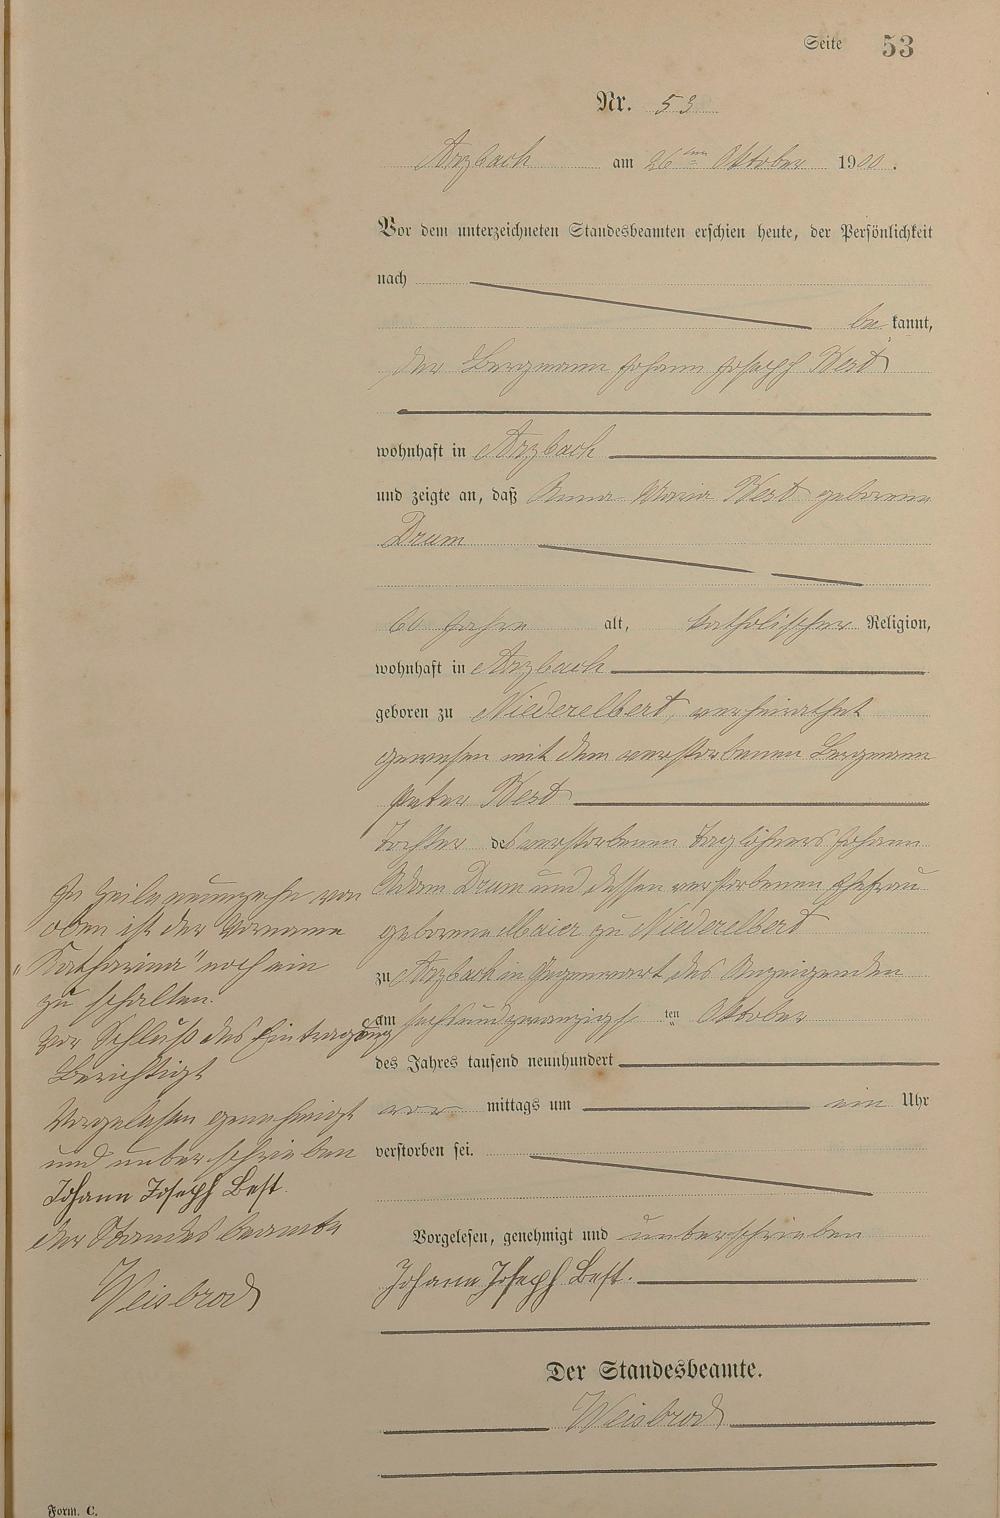 Seite 53
Nr. 53
Arzbach am 26ten Oktober 1900.
Vor dem unterzeichneten Standesbeamten erschien heute, der Persönlichkeit
nach
be kannt,
der Bergmann Johann Joseph Best
wohnhaft in Arzbach
und zeigte an, daß Anna Maria Best geborene
Drum
60 Jahre alt, katholischer Religion,
wohnhaft in Arzbach
geboren zu Niederelbert, verheirathet
gewesen mit dem verstorbenen Bergmann
Peter Best
Tochter des verstorbenen Taglöhners Johann
Adam Drum und dessen verstorbenen Ehefrau
geborene Maier zu Niederelbert
zu Arzbach in Gegenwart des Anzeigenden
am sechsundzwanzigs ten Oktober
des Jahres tausend neunhundert
vor mittags um ein Uhr
verstorben sei.
Vorgelesen, genehmigt und unterschrieben
Johann Joseph Best.
Der Standesbeamte.
Weisbrod
In Zeile neunzehn von
oben ist der Vorname
"Katharina" noch ein
zu schalten.
Vor Schluß des Eintragung
Berichtigt
Vorgelesen genehmigt
und unterschrieben
Johann Joseph Best.
der Standesbeamte
Weisbrod
Form. C.